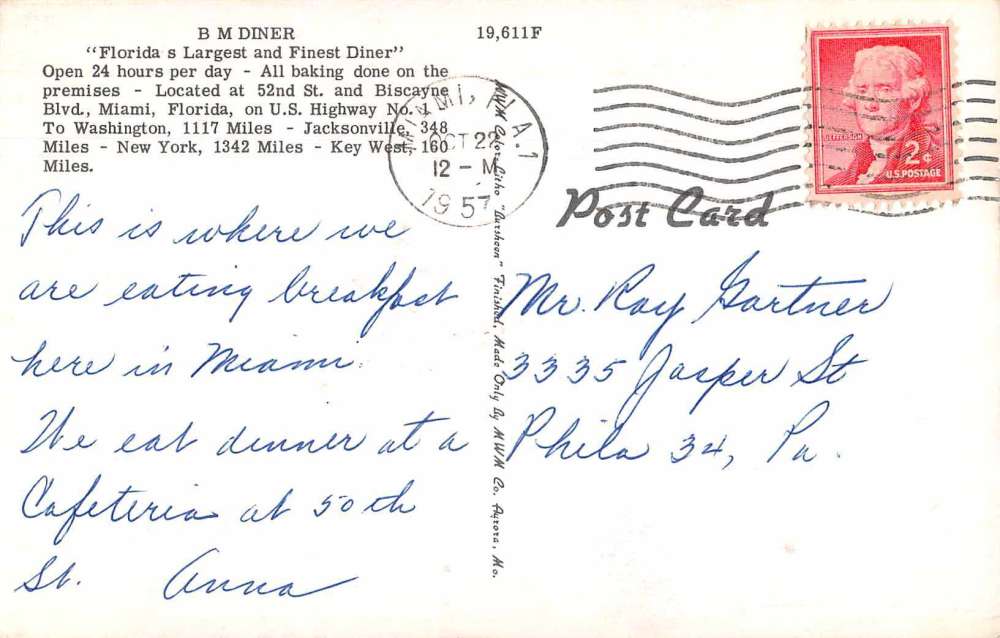 B M DINER
"Florida s Largest and Finest Diner"
Open 24 hours per day - All baking done on the
premises - Located at 52nd St. and Biscayne
Blvd., Miami, Florida, on U.S. Highway No. 1
To Washington, 1117 Miles - Jacksonville, 348
Miles - New York, 1342 Miles - Key West, 160
Miles.
19,611F
MIAMI, FLA. 1
OCT 22
12 - M
1957
JEFFERSON
2¢
U.S. POSTAGE
Post Card
This is where we
are eating breakfast
here in Miami.
We eat dinner at a
Cafeteria at 50th
St. Anna
MWM Color-Litho "Aursheen" Finished, Made Only By MWM Co. Aurora, Mo.
Mr. Ray Gartner
3335 Jasper St
Phila 34, Pa.